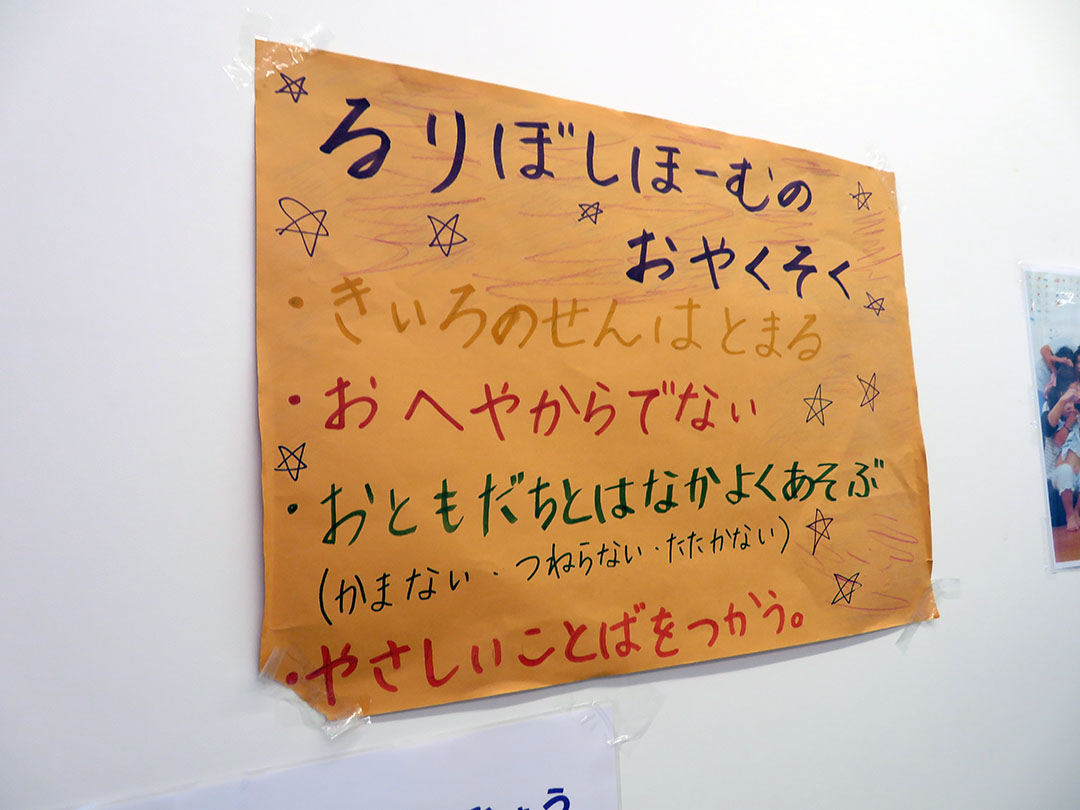 るりぼしほーむの
おやくそく
・きいろのせんはとまる
・おへやからでない
・おともだちとはなかよくあそぶ
(かまない・つねらない・たたかない)
・やさしいことばをつかう。